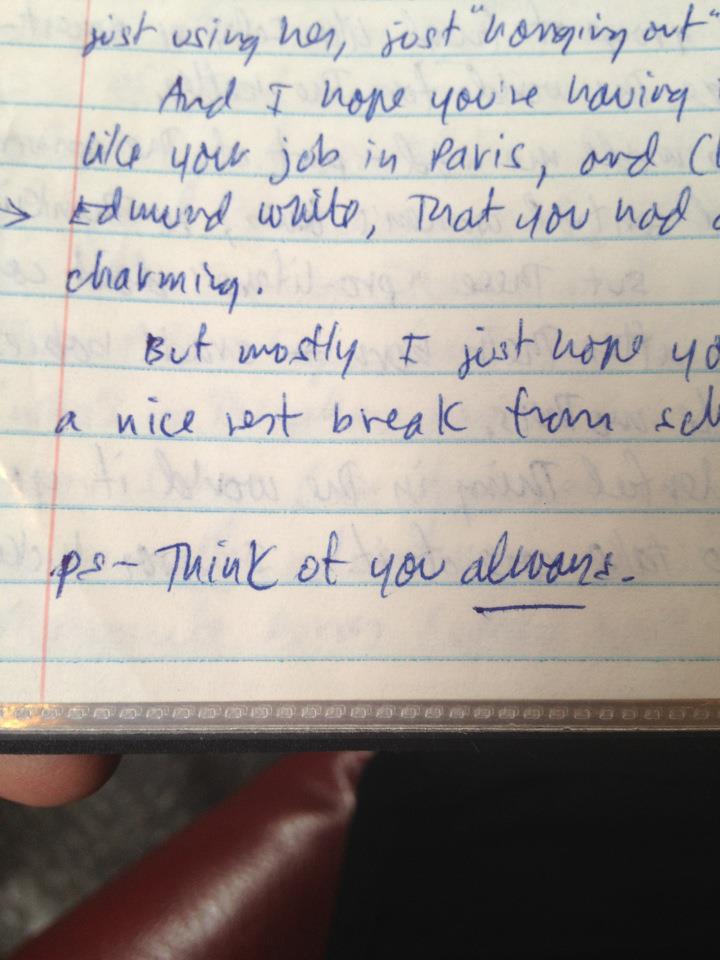 just using her, just "hanging out"
And I hope you're having
like your job in Paris, and (
→ Edmund White, That you had
charming.
But mostly I just hope yo
a nice rest break from sch
ps - Think of you always.